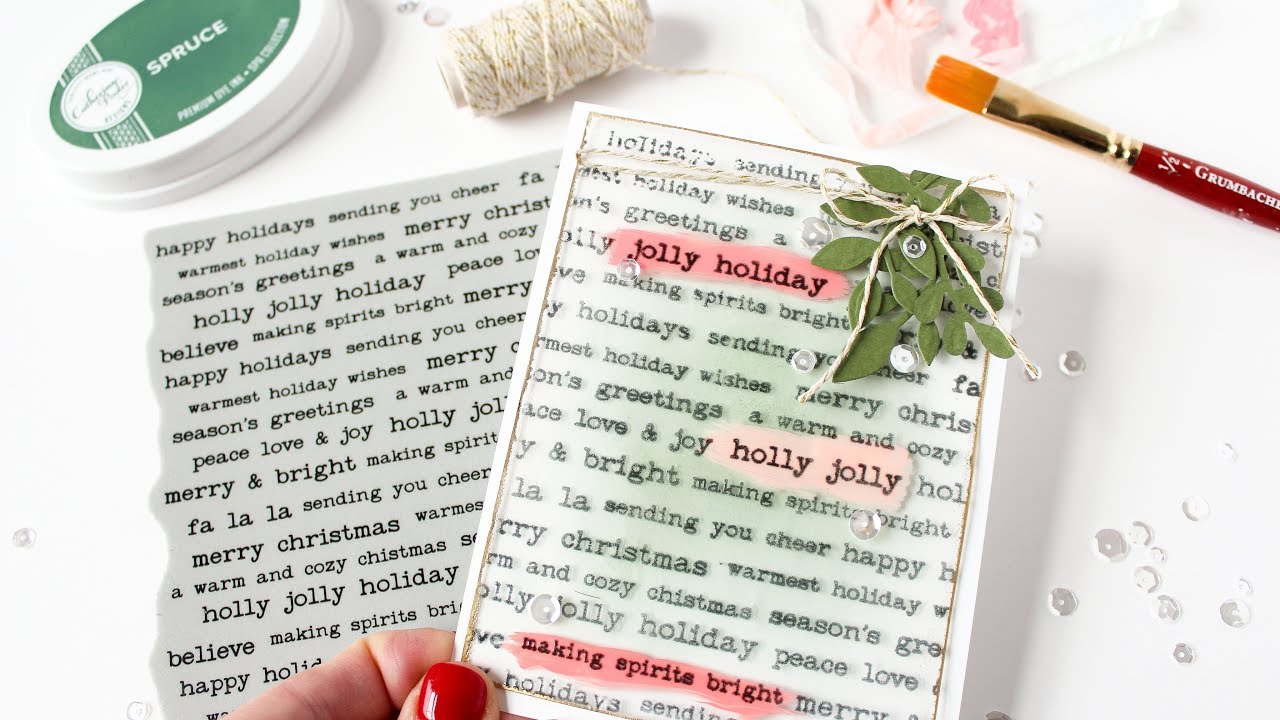 SPRUCE
PREMIUM DYE INK • SPR COLLECTION
DESIGNS
1/2" GRUMBACHE
happy holidays sending you cheer fa
warmest holiday wishes merry christ
season's greetings a warm and cozy
holly jolly holiday peace love
believe making spirits bright merry
happy holidays sending you cheer
warmest holiday wishes merry c
season's greetings a warm and
peace love & joy holly jolly
merry & bright making spirits
fa la la sending you cheer
merry christmas warmest
a warm and cozy chistmas se
holly jolly holiday
believe making spirits brig
happy holid
holidays sending
mest holiday wishes
son's greetings a
olly jolly holiday
ve making spirits bright
y holidays sending you cheer fa
rmest holiday wishes merry chris
son's greetings a warm and cozy
ace love & joy holly jolly hol
y & bright making spirits bright
la la sending you cheer happy h
rry christmas warmest holiday w
rm and cozy chistmas season's gree
olly jolly holiday peace love
ve making spirits bright merry
holidays sending